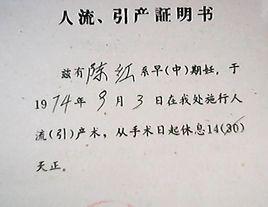 人流、引产证明书
兹有陈红系早(中)期妊，于
1974年9月3日在我处施行人
流(引)产术，从手术日起休息14(30)
天正。